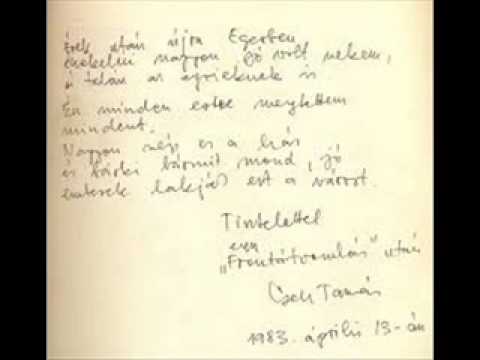 Évek után újra Egerben
énekelni nagyon jó volt nekem,
s talán az egrieknek is
Én minden estre megtettem
mindent.
Nagyon szép ez a ház
és bárki bármit mond, jó
emberek lakják ezt a várost.
Tisztelettel
egy
„Frontátvonulás" után
Cseh Tamás
1983. április 13-án